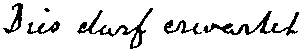 Dies darf erwartet